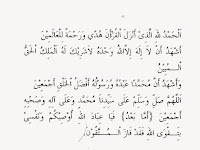 الْحَمْدُ للهِ الَّذِىْ أَنْزَلَ الْقُرْآنَ هُدًي وَرَحْمَةً لِلْعَالَمِيْنَ
أَشْهَدُ أَنْ لَا إِلٰهَ إِلَّااللهُ وَحْدَهُ لَاشَرِيْكَ لَهُ الْمَلِكُ الْحَقُّ
الْــمُبِيْنُ
وَأَشْهَدُ أَنَّ مُحَمَّدًا عَبْدُهُ وَرَسُوْلُهُ أَفْضَلُ الْخَلْقِ أَجْمَعِيْنَ
اَللّٰهُمَّ صَلِّ وَسَلِّمْ عَلَى سَيِّدِنَا مُحَمَّدٍ وَعَلَى آلِهِ وَصَحْبِهِ
أَجْمَعِيْنَ {أَمَّا بَعْدُ} فَيَا عِبَادَ اللهِ أُوْصِيْكُمْ وَنَفْسِيْ
بِتَــقْوَى اللهِ فَقَدْ فَازَ الْــمُتَّقُوْنَ؛